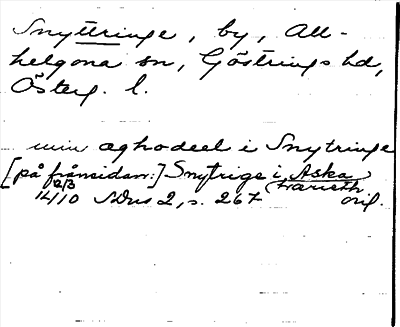 Snyttringe, by, All-
helgona sn, Göstrings hd,
Österg. l.
min aghodeel i Snytringe
[på frånsidan:] Snytrige i Aska
hæreth
12/3
14/10 SDns 2, s. 267 oril.